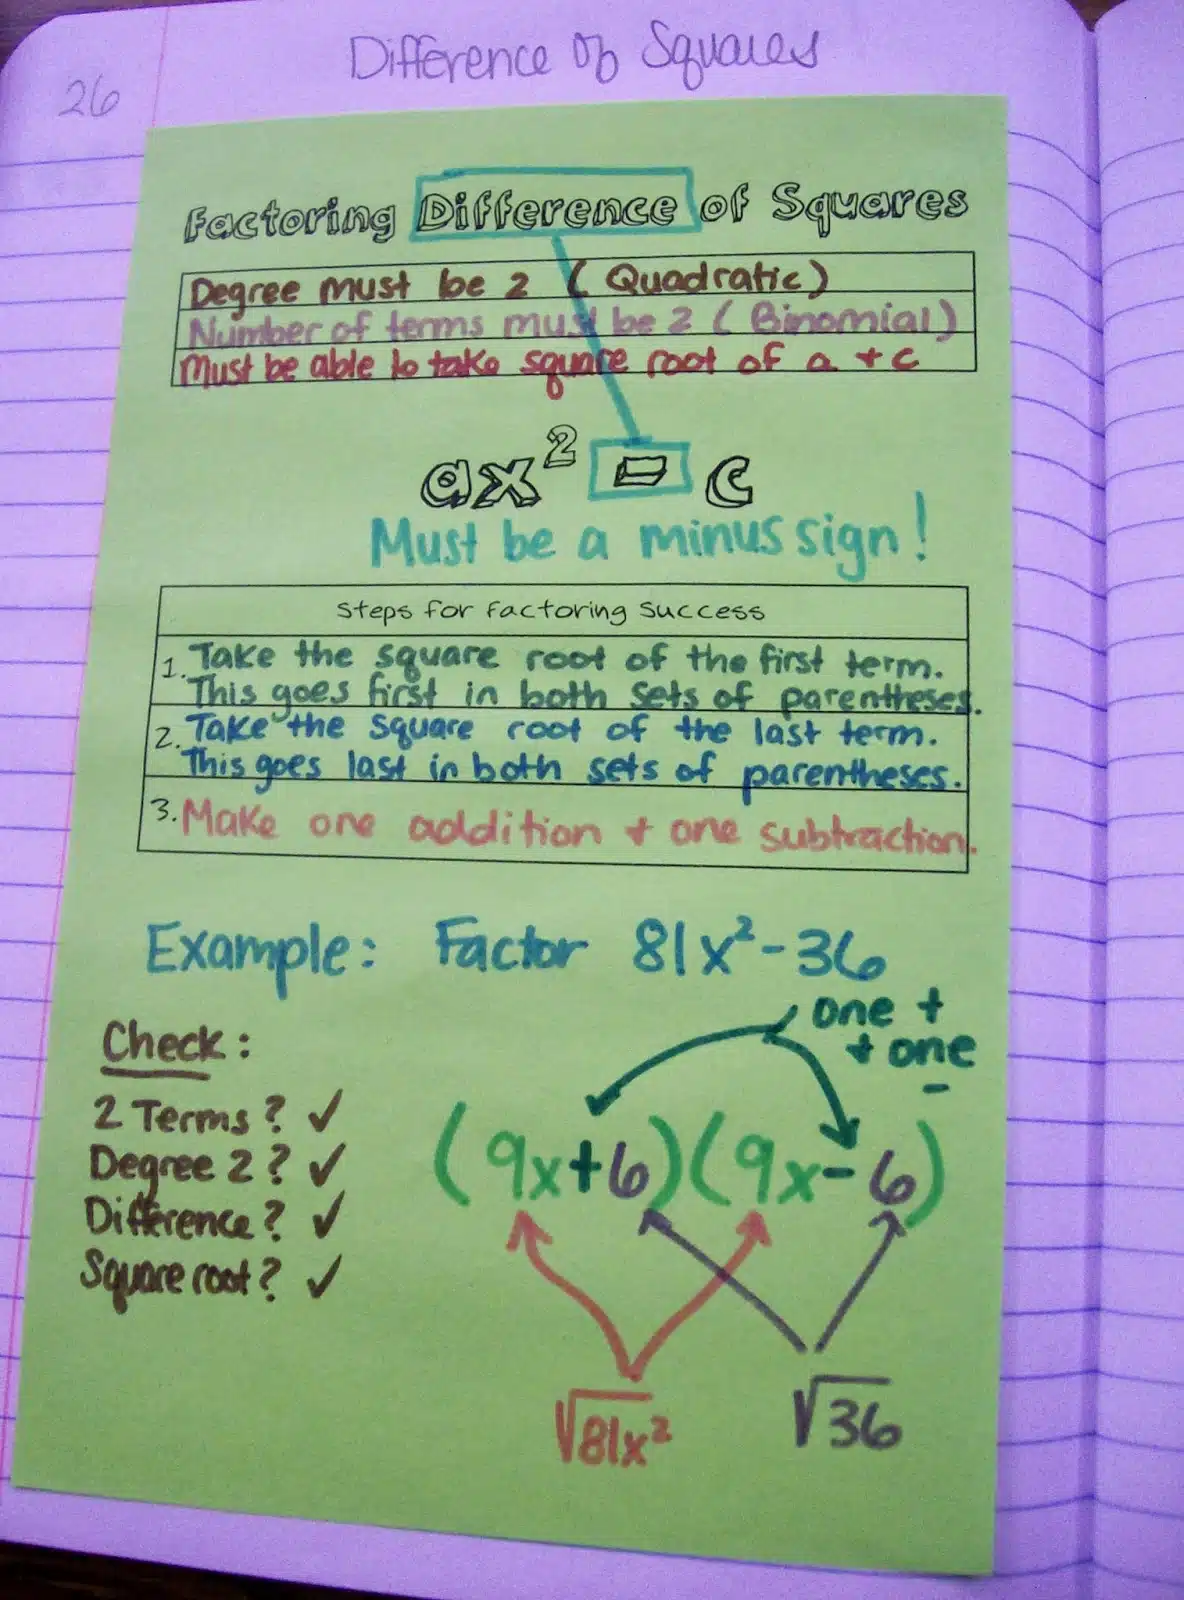 Difference of Squares
26
Factoring Difference of Squares
Degree must be 2 (Quadratic)
Number of terms must be 2 (Binomial)
Must be able to take square root of a + c
ax² - c
Must be a minus sign!
Steps for Factoring Success
1. Take the square root of the first term.
This goes first in both sets of parentheses.
2. Take the square root of the last term.
This goes last in both sets of parentheses.
3. Make one addition + one subtraction.
Example: Factor 81x² - 36
one +
+ one
-
Check:
2 Terms? ✓
Degree 2? ✓
Difference? ✓
Square root? ✓
(9x+6)(9x-6)
√81x² √36